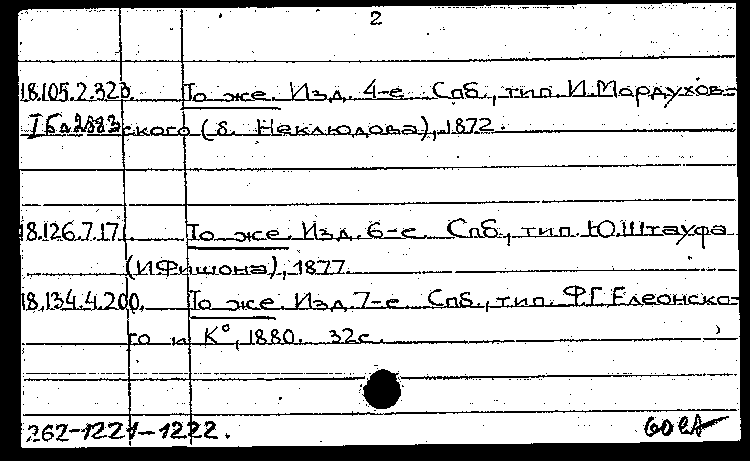 2
18.105.2.323. То же. Изд. 4-е. Спб., тип. И. Мордухов-
IБа2883 ского (б. Неклюдова), 1872.
18.126.7.171. То же. Изд. 6-е. Спб., тип. Ю.Штауфа
(И.Фишона), 1877.
18.134.4.200. То же. Изд. 7-е. Спб., тип. Ф.Г.Елеонско-
го и К°, 1880. 32с.
262-1221-1222.